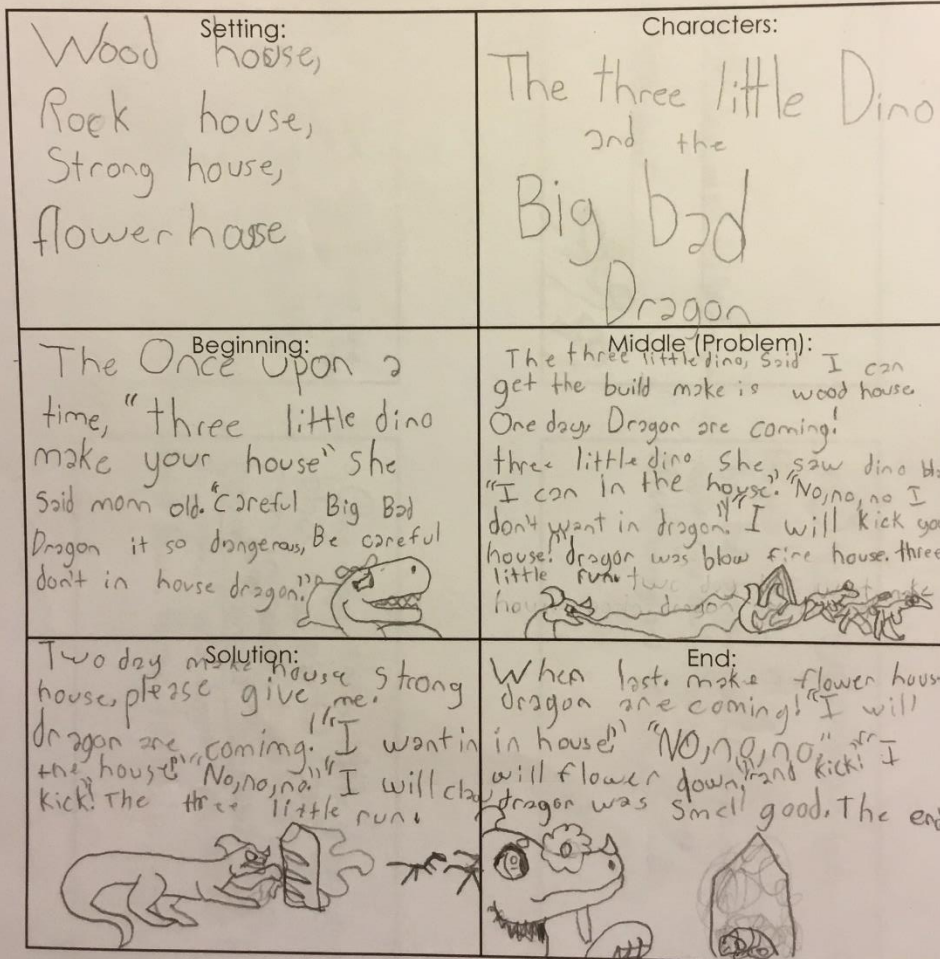 Setting:
Wood house,
Rock house,
Strong house,
flower house
Characters:
The three little Dino
and the
Big bad
Dragon
Beginning:
The Once upon a
time, "three little dino
make your house" she
said mom old. "Careful Big Bad
Dragon it so dangerous, Be careful
don't in house dragon."
Middle (Problem):
The three little dino, said I can
get the build make is wood house
One day, Dragon are coming!
three little dino she, saw dino
"I can in the house." "No, no, no I
don't want in dragon!" "I will kick
house! dragon was blow fire house. three
little run. two
dragon
Solution:
Two day make house strong
house, please give me.
dragon are coming! "I want in
the house!" "No, no, no." "I will
kick!" The three little run.
End:
When last. make flower
dragon are coming! "I will
in house!" "NO, no, no." "I
will flower down," and kick! I
dragon was smell good. The